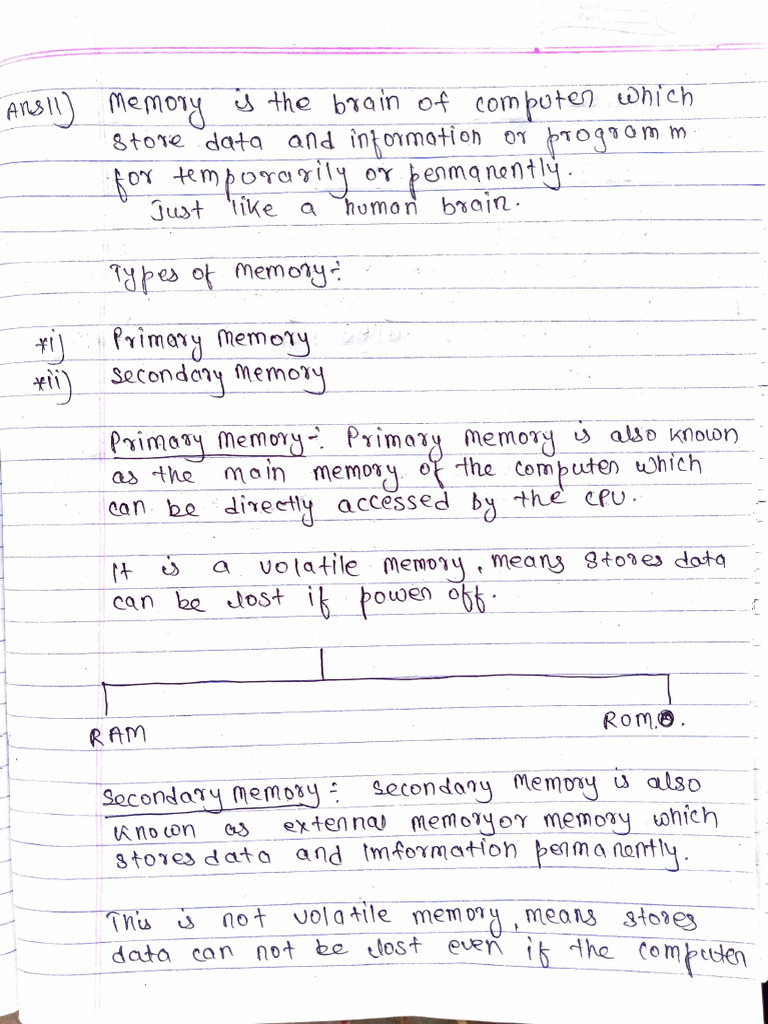 Ans11) Memory is the brain of computer which
store data and information or programm
for temporarily or permanently.
Just like a human brain.
Types of memory:-
*i) Primary Memory
*ii) Secondary Memory
Primary Memory:- Primary Memory is also known
as the main memory of the computer which
can be directly accessed by the CPU.
It is a volatile memory, means stores data
can be lost if power off.
RAM ROM.
Secondary Memory:- Secondary Memory is also
known as external memory or memory which
stores data and imformation permanently.
This is not volatile memory, means stores
data can not be lost even if the computer